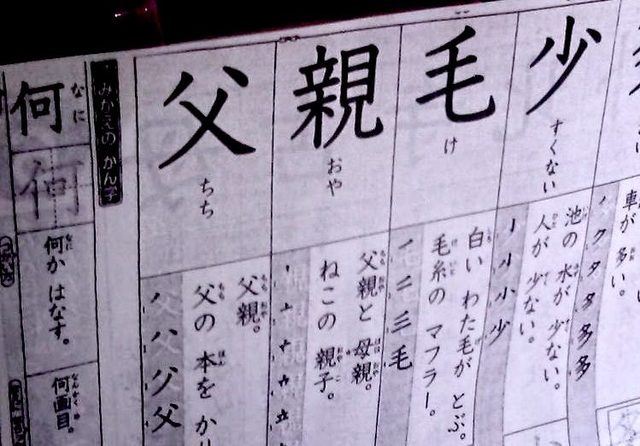 車が 多い。
ノ ク タ 多 多 多
少
すくない
池の 水が 少ない。
人が 少ない。
亅 小 小 少
毛
け
白い わた毛が とぶ。
毛糸の マフラー。
一 二 三 毛
親
おや
父親と 母親。
ねこの 親子。
父
ちち
父親。
父の 本を かり
ノ 八 グ 父
みかえの かん字
何
なに
何
何か はなす。
何画目。